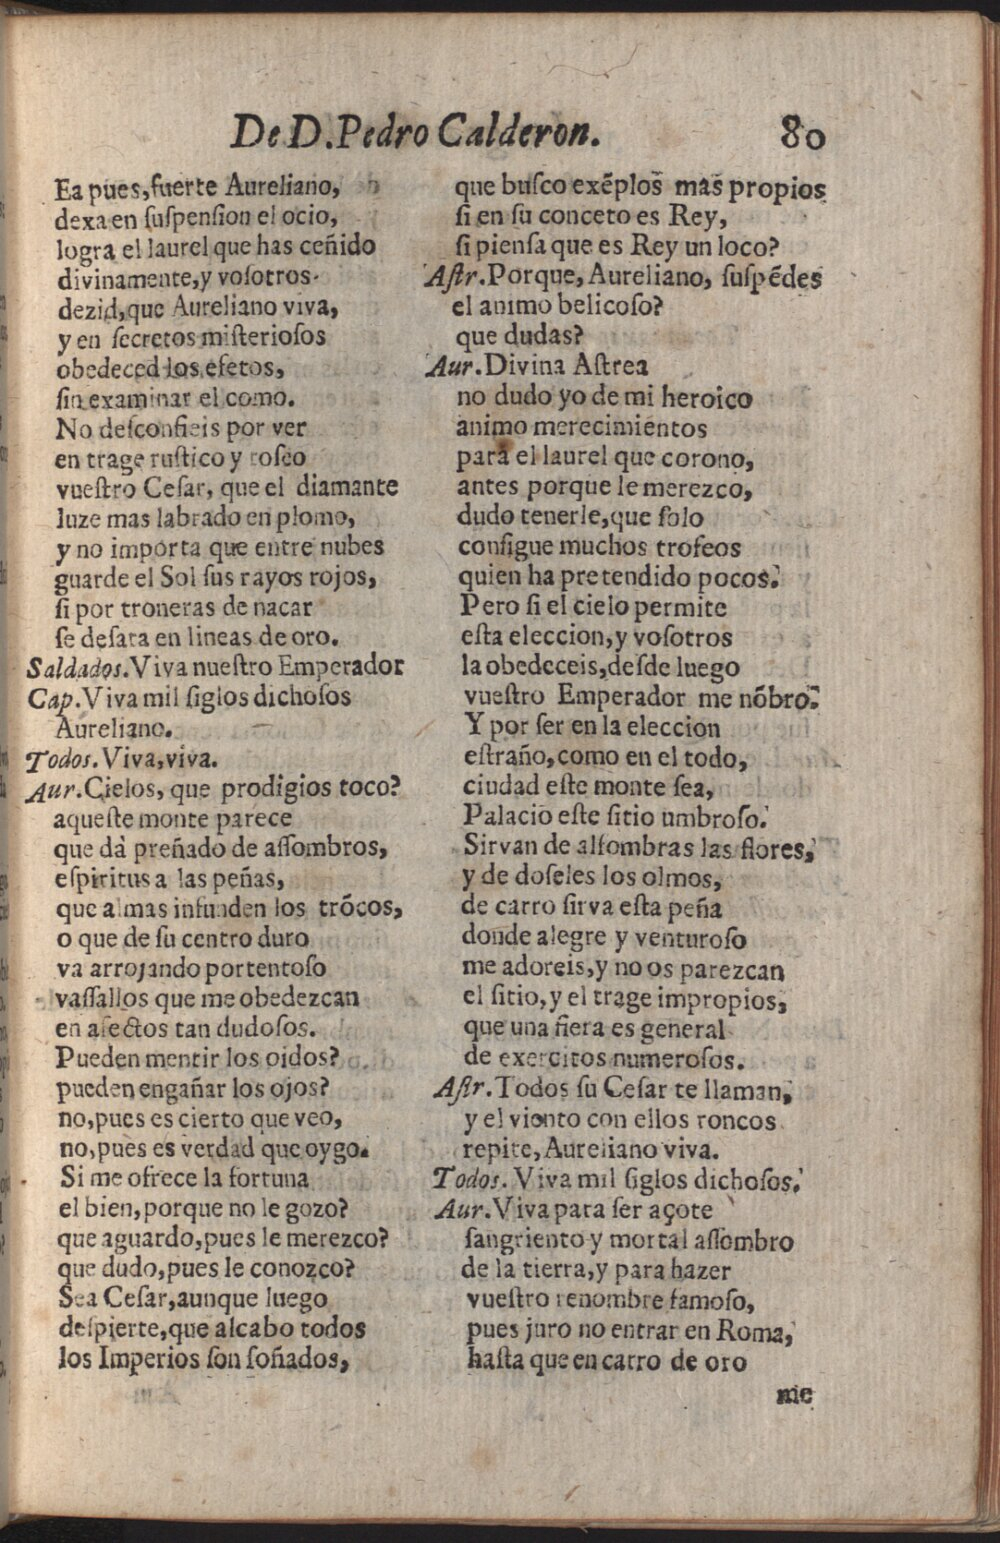 De D. Pedro Calderon. 80
Ea pues, fuerte Aureliano,
dexa en ſuſpenſion el ocio,
logra el laurel que has ceñido
divinamente, y voſotros
dezid, que Aureliano viva,
y en ſecretos miſterioſos
obedeced los efetos,
ſin examinar el como.
No deſconfieis por ver
en trage ruſtico y toſco
vueſtro Ceſar, que el diamante
luze mas labrado en plomo,
y no importa que entre nubes
guarde el Sol ſus rayos rojos,
ſi por troneras de nacar
ſe deſata en lineas de oro.
Saldados. Viva nueſtro Emperador
Cap. Viva mil ſiglos dichoſos
Aureliano.
Todos. Viva, viva.
Aur. Cielos, que prodigios toco?
aqueſte monte parece
que dà preñado de aſſombros,
eſpiritus a las peñas,
que almas infunden los trõcos,
o que de ſu centro duro
va arrojando portentoſo
vaſſallos que me obedezcan
en afectos tan dudoſos.
Pueden mentir los oidos?
pueden engañar los ojos?
no, pues es cierto que veo,
no, pues es verdad que oygo.
Si me ofrece la fortuna
el bien, porque no le gozo?
que aguardo, pues le merezco?
que dudo, pues le conozco?
Sea Ceſar, aunque luego
deſpierte, que alcabo todos
los Imperios ſon ſoñados,
que buſco exẽplos mas propios
ſi en ſu conceto es Rey,
ſi pienſa que es Rey un loco?
Aſtr. Porque, Aureliano, ſuſpẽdes
el animo belicoſo?
que dudas?
Aur. Divina Aſtrea
no dudo yo de mi heroico
animo merecimientos
para el laurel que corono,
antes porque le merezco,
dudo tenerle, que ſolo
conſigue muchos trofeos
quien ha pretendido pocos.
Pero ſi el cielo permite
eſta eleccion, y voſotros
la obedeceis, deſde luego
vueſtro Emperador me nõbro.
Y por ſer en la eleccion
eſtraño, como en el todo,
ciudad eſte monte ſea,
Palacio eſte ſitio umbroſo.
Sirvan de alfombras las flores,
y de doſeles los olmos,
de carro ſirva eſta peña
donde alegre y venturoſo
me adoreis, y no os parezcan
el ſitio, y el trage impropios,
que una fiera es general
de exercitos numeroſos.
Aſtr. Todos ſu Ceſar te llaman,
y el viento con ellos roncos
repite, Aureliano viva.
Todos. Viva mil ſiglos dichoſos.
Aur. Viva para ſer açote
ſangriento y mortal aſſombro
de la tierra, y para hazer
vueſtro renombre famoſo,
pues juro no entrar en Roma,
haſta que en carro de oro
me